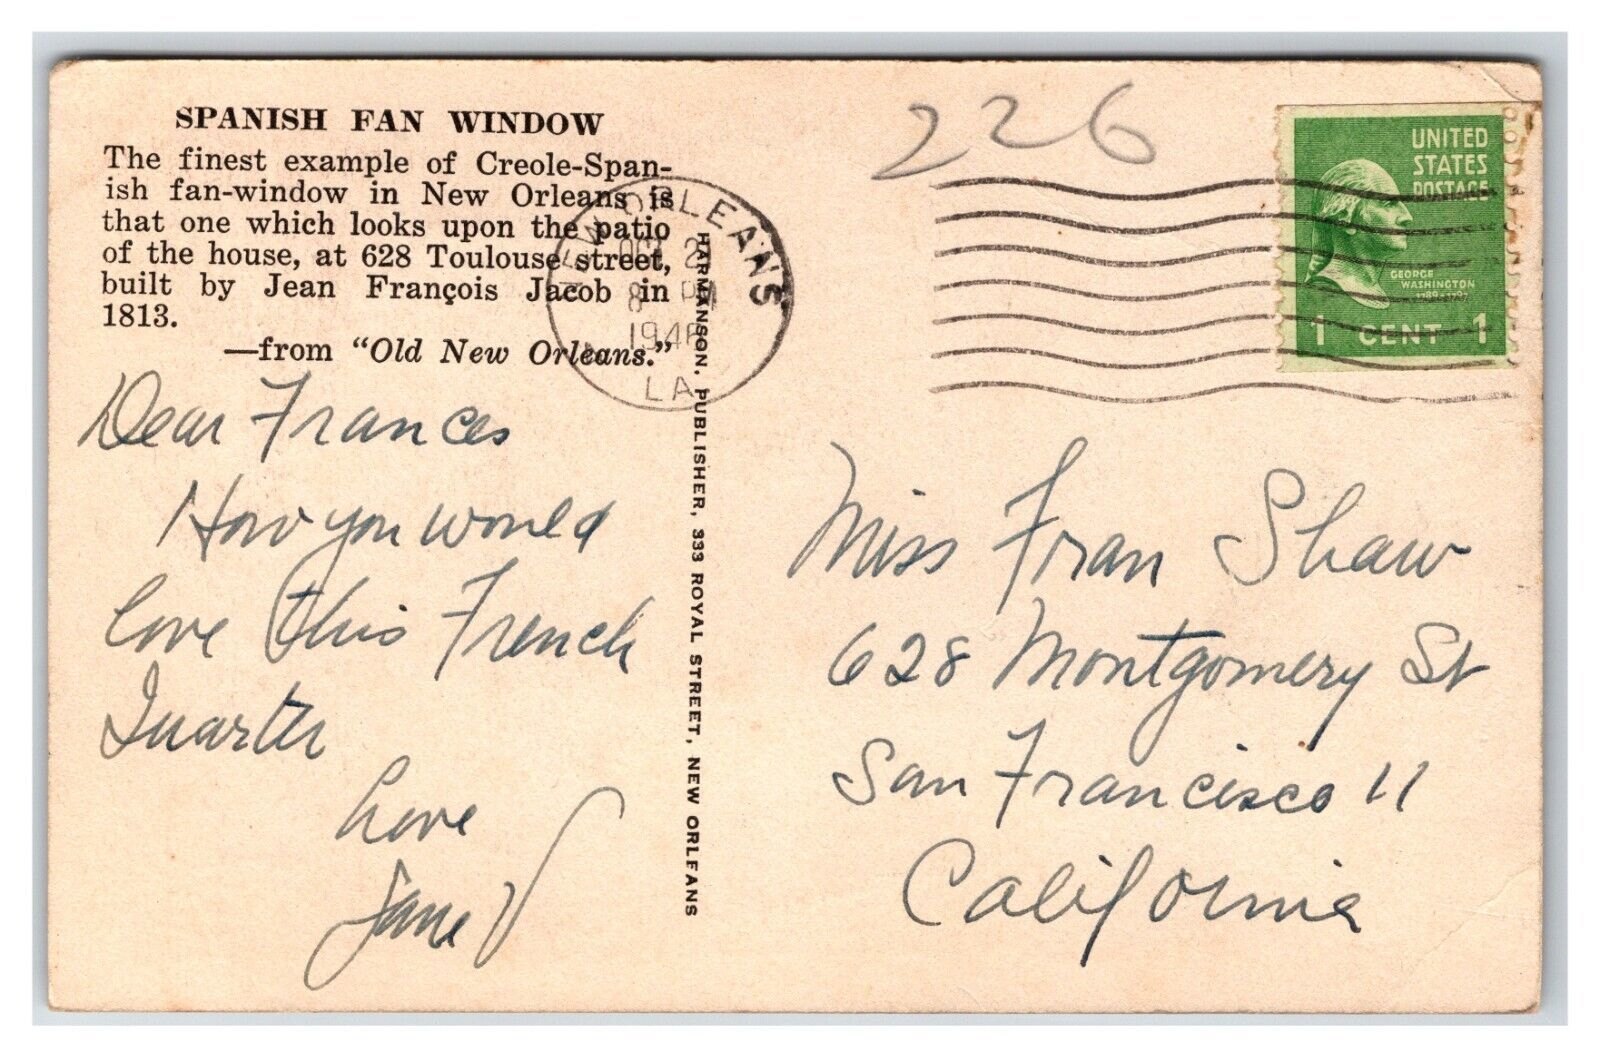 SPANISH FAN WINDOW
The finest example of Creole-Span-
ish fan-window in New Orleans is
that one which looks upon the patio
of the house, at 628 Toulouse street,
built by Jean François Jacob in
1813.
—from "Old New Orleans."
Dear Frances
How you would
love this French
Quarter
Love
Jane
HARMANSON. PUBLISHER, 333 ROYAL STREET, NEW ORLEANS
NEW ORLEANS
OCT 2
8 PM
1946
LA
226
UNITED
STATES
POSTAGE
GEORGE
WASHINGTON
1789-1797
1 CENT 1
Miss Fran Shaw
628 Montgomery St
San Francisco 11
California